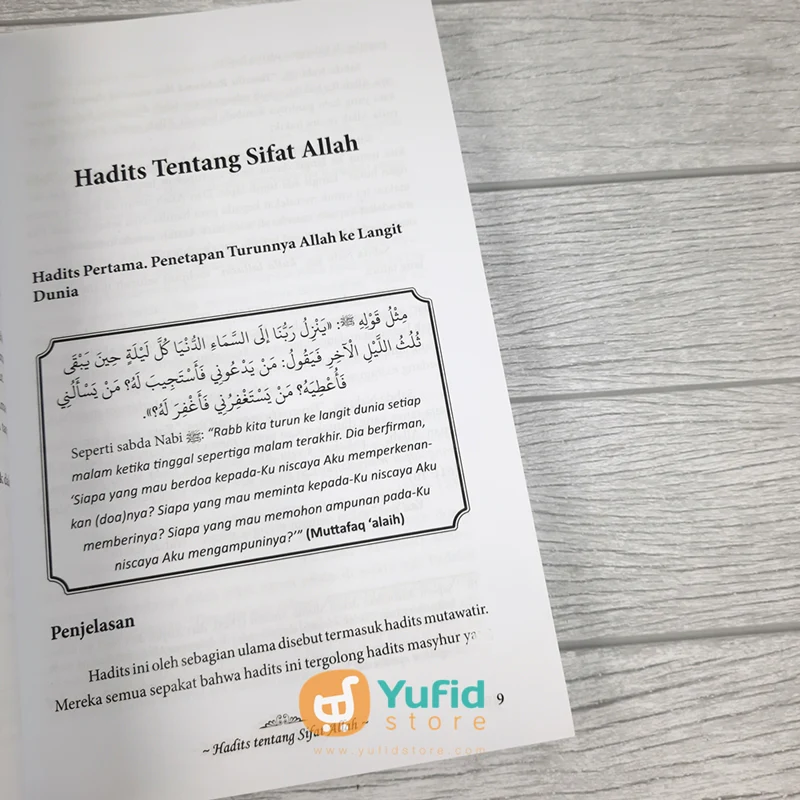 Hadits Tentang Sifat Allah
Hadits Pertama. Penetapan Turunnya Allah ke Langit
Dunia
مِثْلُ قَوْلِهِ ﷺ: «يَنْزِلُ رَبُّنَا إِلَى السَّمَاءِ الدُّنْيَا كُلَّ لَيْلَةٍ حِينَ يَبْقَى
ثُلُثُ اللَّيْلِ الْآخِرِ فَيَقُولُ: مَنْ يَدْعُونِي فَأَسْتَجِيبَ لَهُ؟ مَنْ يَسْأَلُنِي
فَأُعْطِيَهُ؟ مَنْ يَسْتَغْفِرُنِي فَأَغْفِرَ لَهُ؟».
Seperti sabda Nabi ﷺ: “Rabb kita turun ke langit dunia setiap
malam ketika tinggal sepertiga malam terakhir. Dia berfirman,
‘Siapa yang mau berdoa kepada-Ku niscaya Aku memperkenan-
kan (doa)nya? Siapa yang mau meminta kepada-Ku niscaya Aku
memberinya? Siapa yang mau memohon ampunan pada-Ku
niscaya Aku mengampuninya?’” (Muttafaq ‘alaih)
Penjelasan
Hadits ini oleh sebagian ulama disebut termasuk hadits mutawatir.
Mereka semua sepakat bahwa hadits ini tergolong hadits masyhur
9
~ Hadits tentang Sifat Allah ~
Yufid
store
www.yufidstore.com